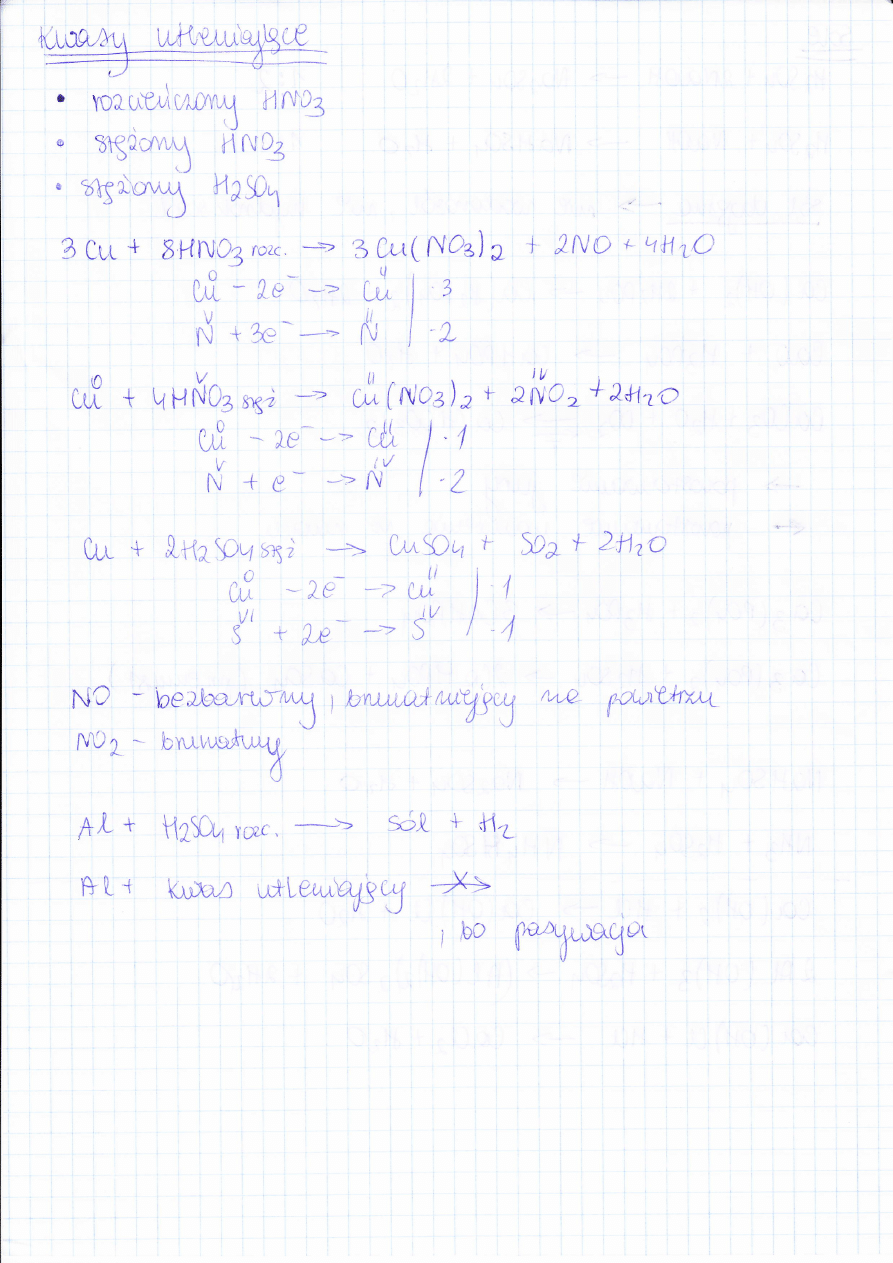 Kwasy utleniające
• rozcieńczony HNO3
• stężony HNO3
• stężony H2SO4
3 Cu + 8HNO3 rozc. → 3 Cu(NO3)2 + 2NO + 4H2O
Cu⁰ - 2e⁻ → Cuᴵᴵ | ·3
Nⱽ + 3e⁻ → Nᴵᴵ | ·2
Cu⁰ + 4HNⱽO3 stęż → Cuᴵᴵ(NO3)2 + 2NᴵⱽO2 + 2H2O
Cu⁰ - 2e⁻ → Cuᴵᴵ | ·1
Nⱽ + e⁻ → Nᴵⱽ | ·2
Cu + 2H2SO4 stęż → CuSO4 + SO2 + 2H2O
Cu⁰ - 2e⁻ → Cuᴵᴵ | ·1
Sⱽᴵ + 2e⁻ → Sᴵⱽ | ·1
NO - bezbarwny, brunatniejący na powietrzu
NO2 - brunatny
Al + H2SO4 rozc. → sól + H2
Al + kwas utleniający -X->
, bo pasywacja